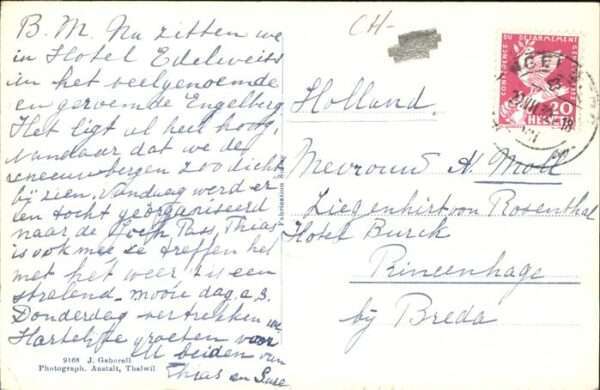 B. M. Nu zitten we
in Hotel Edelweiss
in het veelgenoemde
en geroemde Engelberg
Het ligt al heel hoog,
vandaar dat we de
sneeuwbergen zoo dicht
bij zien. Vandaag werd er
een tocht georganiseerd
naar de Joch Pass, Thias
is ook mee ze treffen het
met het weer 't is een
stralend mooie dag. a.s.
Donderdag vertrekken we
Hartelijke groeten voor
U beiden van
Thias en Suse
9168 J. Gaberell
Photograph. Anstalt, Thalwil
CH-
CONFERENCE DU DESARMEMENT
20
HELVETIA
Holland.
Mevrouw N. Moll
Ziegenhirt von Rosenthal
Hotel Burck
Princenhage
bij Breda